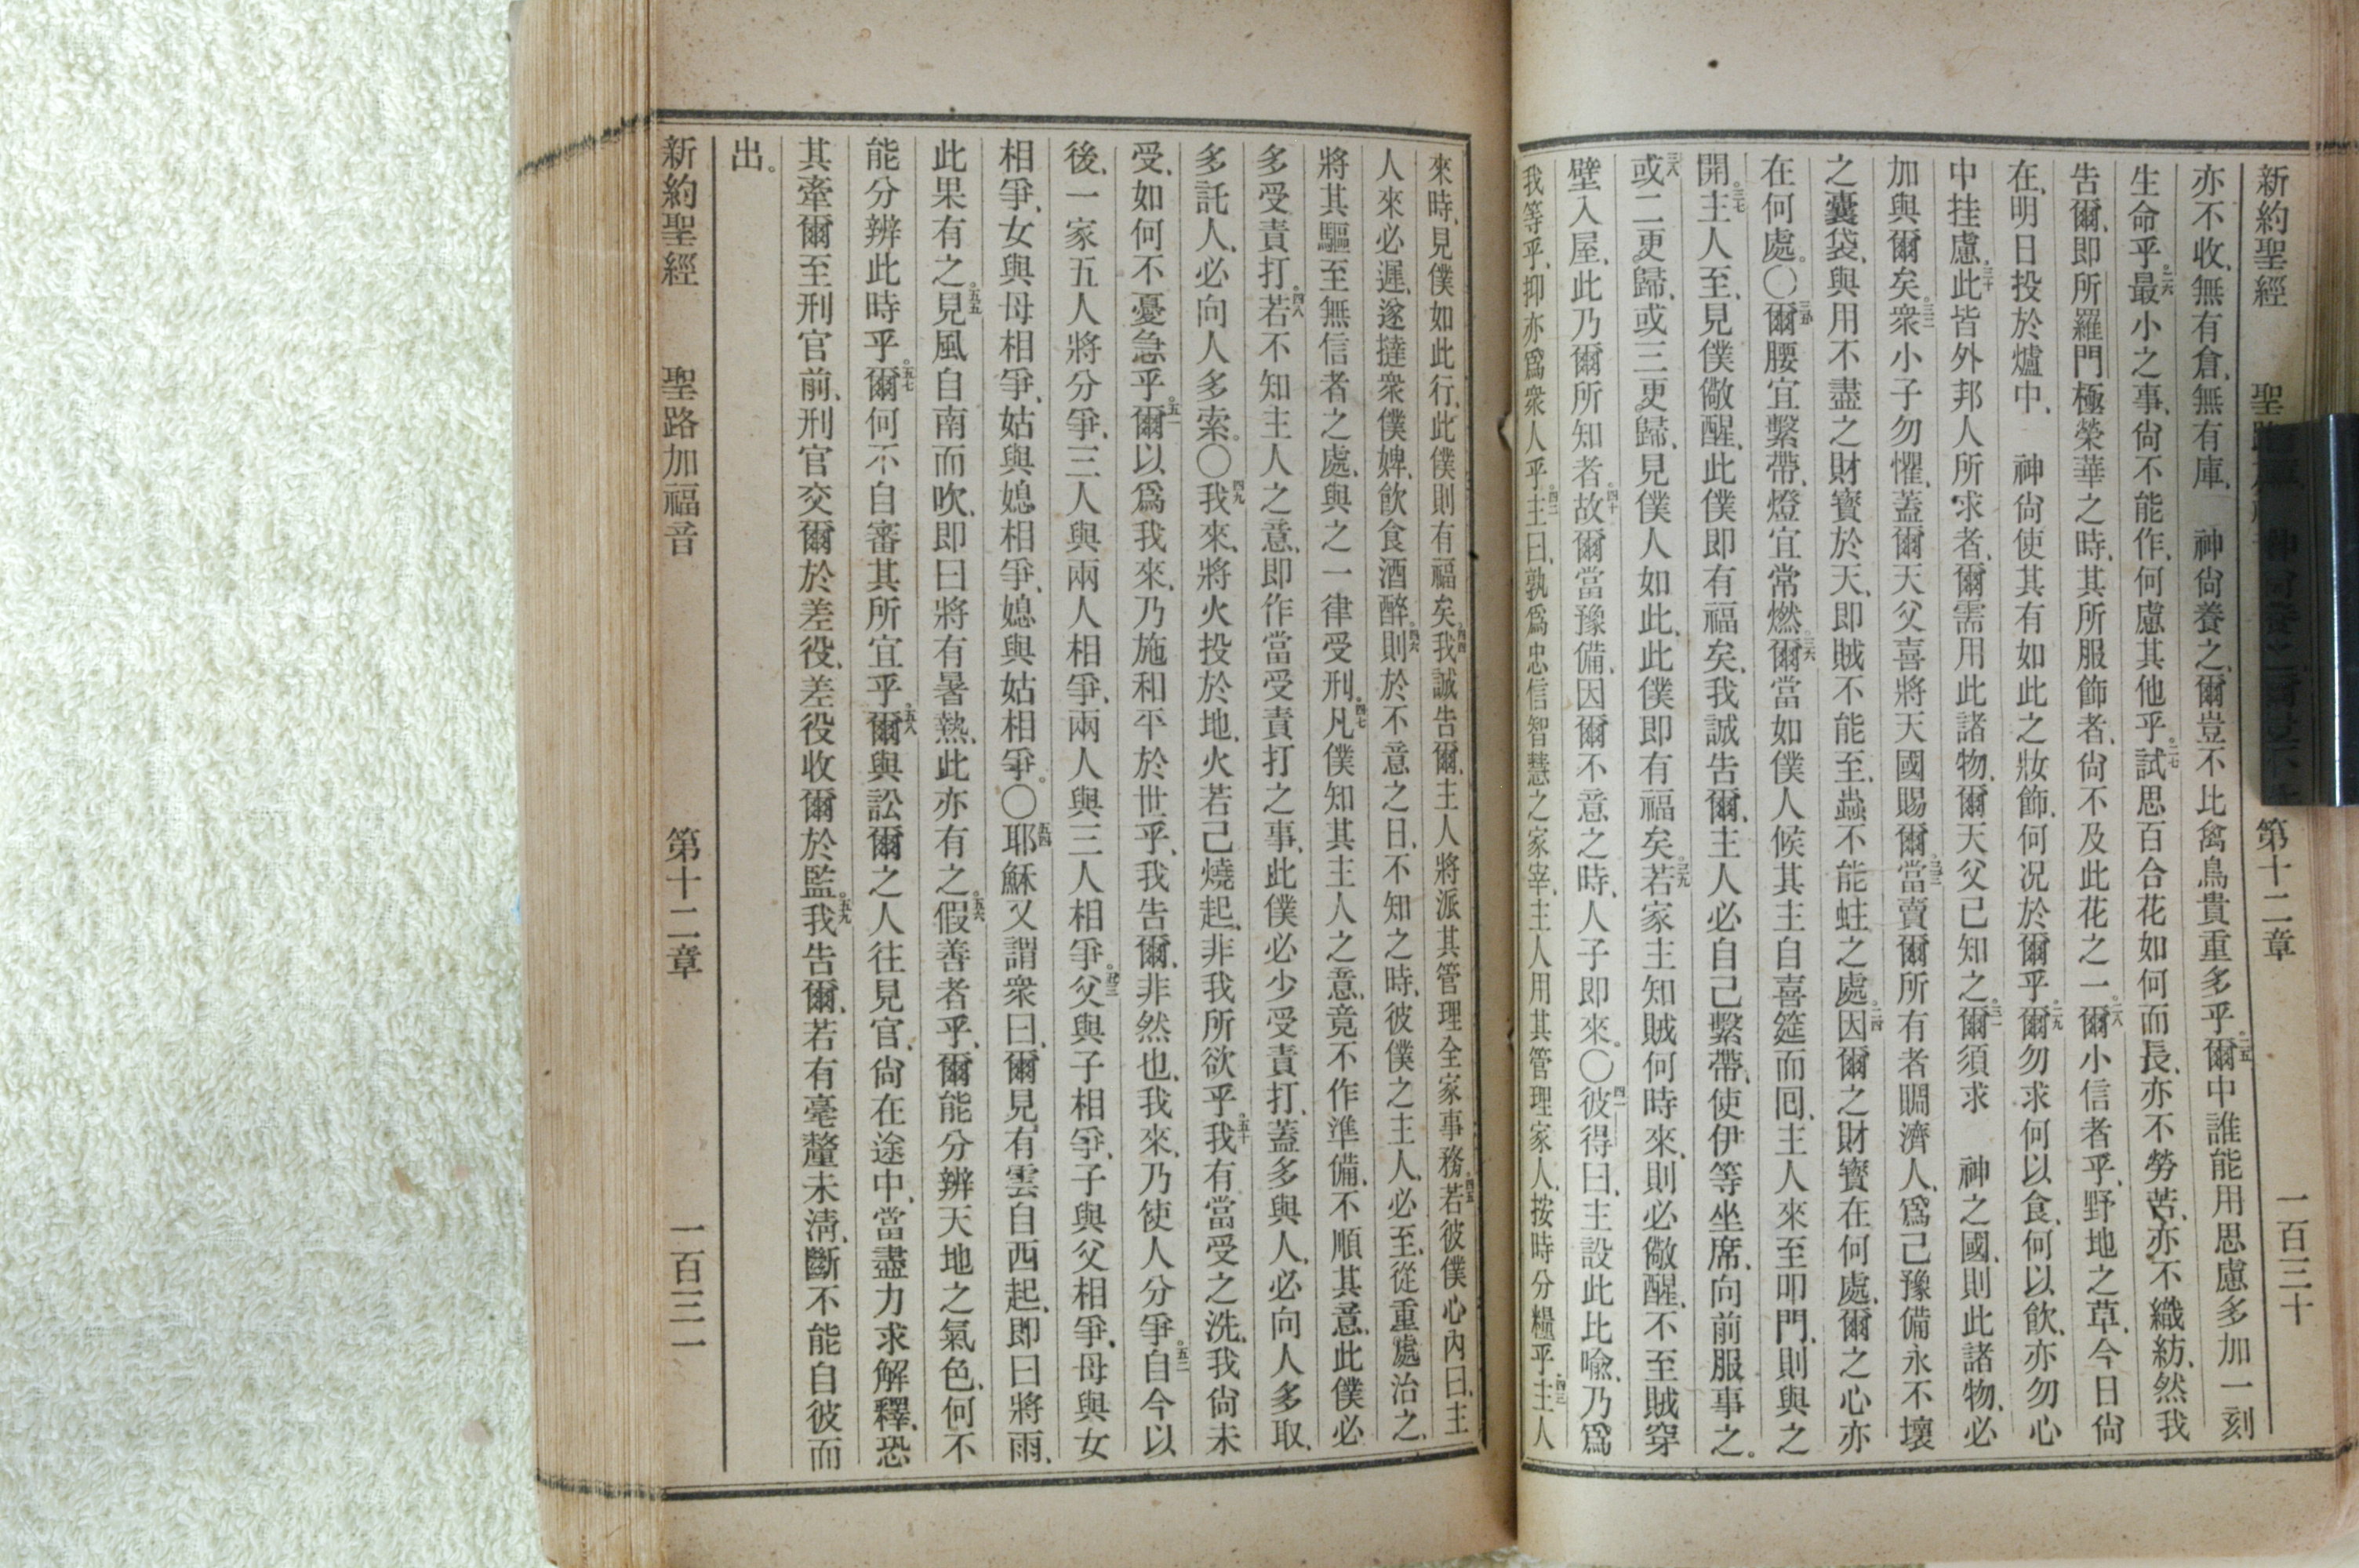 新約聖經 聖 第十二章 一百三十
亦不收、無有倉、無有庫、 神尙養之、爾豈不比禽鳥貴重多乎。二五爾中誰能用思慮多加一刻
生命乎。二六最小之事、尙不能作、何慮其他乎。二七試思百合花如何而長、亦不勞苦、亦不織紡、然我
告爾、卽所羅門極榮華之時、其所服飾者、尙不及此花之一。二八爾小信者乎、野地之草、今日尙
在、明日投於爐中、 神尙使其有如此之妝飾、何况於爾乎。二九爾勿求何以食、何以飲、亦勿心
中挂慮、三十此皆外邦人所求者、爾需用此諸物、爾天父已知之。三一爾須求 神之國、則此諸物、必
加與爾矣。三二衆小子勿懼、蓋爾天父喜將天國賜爾。三三當賣爾所有者賙濟人、爲己豫備永不壞
之囊袋、與用不盡之財寳於天、卽賊不能至、蟲不能蛀之處。三四因爾之財寳在何處、爾之心亦
在何處。〇三五爾腰宜繫帶、燈宜常燃。三六爾當如僕人候其主自喜筵而回、主人來至叩門、則與之
開。三七主人至、見僕儆醒、此僕卽有福矣、我誠吿爾、主人必自己繫帶、使伊等坐席、向前服事之。
三八或二更歸、或三更歸、見僕人如此、此僕卽有福矣。三九若家主知賊何時來、則必儆醒、不至賊穿
壁入屋、此乃爾所知者。四十故爾當豫備、因爾不意之時、人子卽來。〇四一彼得曰、主設此比喻、乃爲
我等乎、抑亦爲衆人乎。四二主曰、孰爲忠信智慧之家宰、主人用其管理家人、按時分糧乎。四三主人
來時、見僕如此行、此僕則有福矣。四四我誠告爾、主人將派其管理全家事務。四五若彼僕心內曰、主
人來必遲、遂撻衆僕婢、飲食酒醉。四六則於不意之日、不知之時、彼僕之主人、必至、從重處治之、
將其驅至無信者之處、與之一律受刑。四七凡僕知其主人之意、竟不作準備、不順其意、此僕必
多受責打。四八若不知主人之意、卽作當受責打之事、此僕必少受責打、蓋多與人、必向人多取、
多託人、必向人多索。〇四九我來、將火投於地、火若已燒起、非我所欲乎。五十我有當受之洗、我尙未
受、如何不憂急乎。五一爾以爲我來、乃施和平於世乎、我告爾、非然也、我來、乃使人分爭。五二自今以
後、一家五人將分爭、三人與兩人相爭、兩人與三人相爭。五三父與子相爭、子與父相爭、母與女
相爭、女與母相爭、姑與媳相爭、媳與姑相爭。〇五四耶穌又謂衆曰、爾見有雲自西起、卽曰將雨、
此果有之。五五見風自南而吹、卽曰將有暑熱、此亦有之。五六假善者乎、爾能分辨天地之氣色、何不
能分辨此時乎。五七爾何不自審其所宜乎。五八爾與訟爾之人往見官、尙在途中、當盡力求解釋、恐
其牽爾至刑官前、刑官交爾於差役、差役收爾於監。五九我告爾、若有毫釐未淸、斷不能自彼而
出。
新約聖經 聖路加福音 第十二章 一百三一